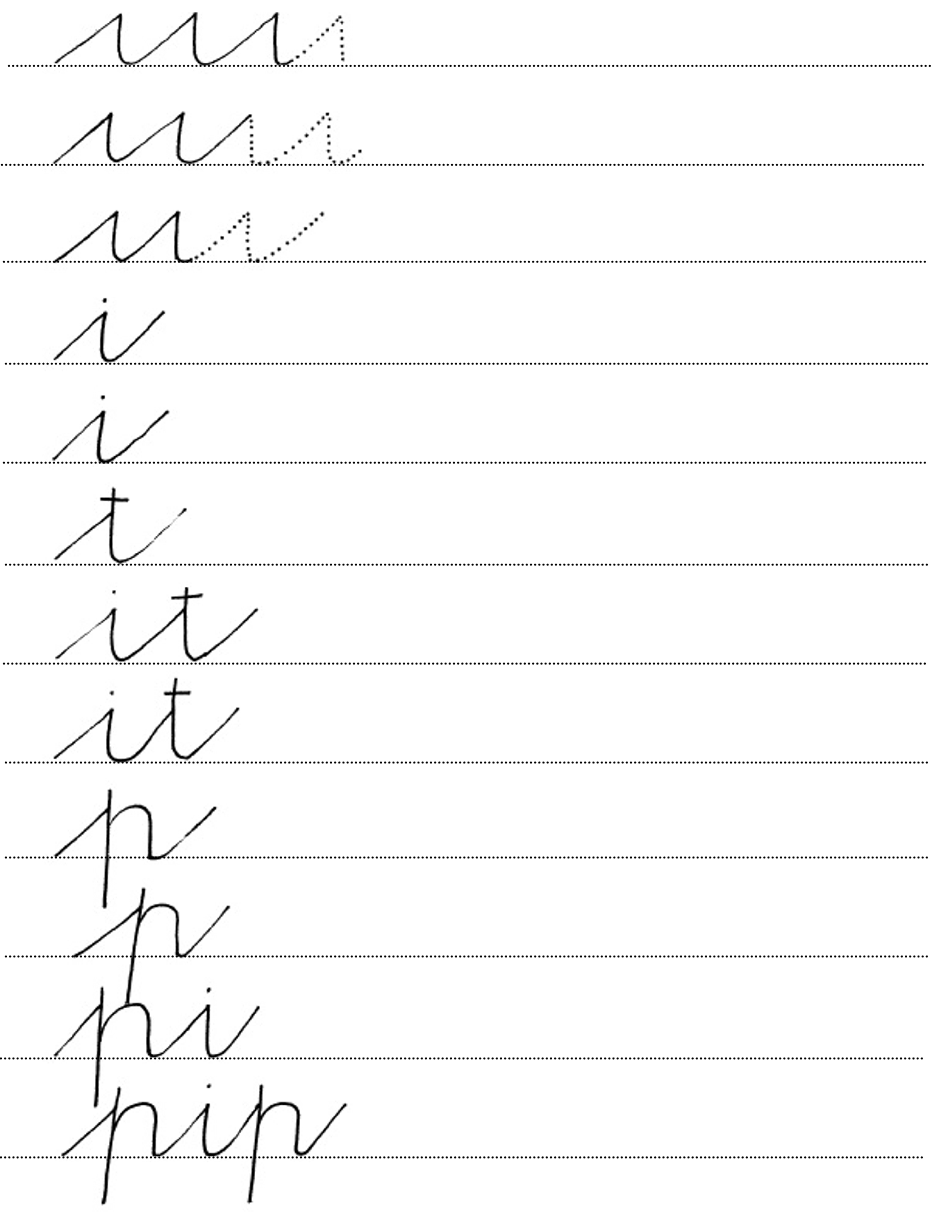 i
i
t
it
it
p
p
pi
pip